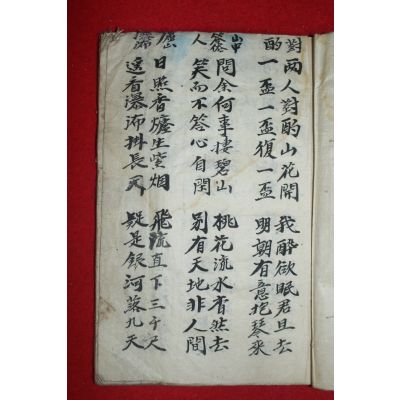 對兩人對酌山花開 我醉欲眠君且去
酌一盃一盃復一盃 明朝有意抱琴來
山中問余何事棲碧山 桃花流水杳然去
答俗人笑而不答心自閑 別有天地非人間
廬山日照香爐生紫烟 飛流直下三千尺
遙看瀑布掛長川 疑是銀河落九天